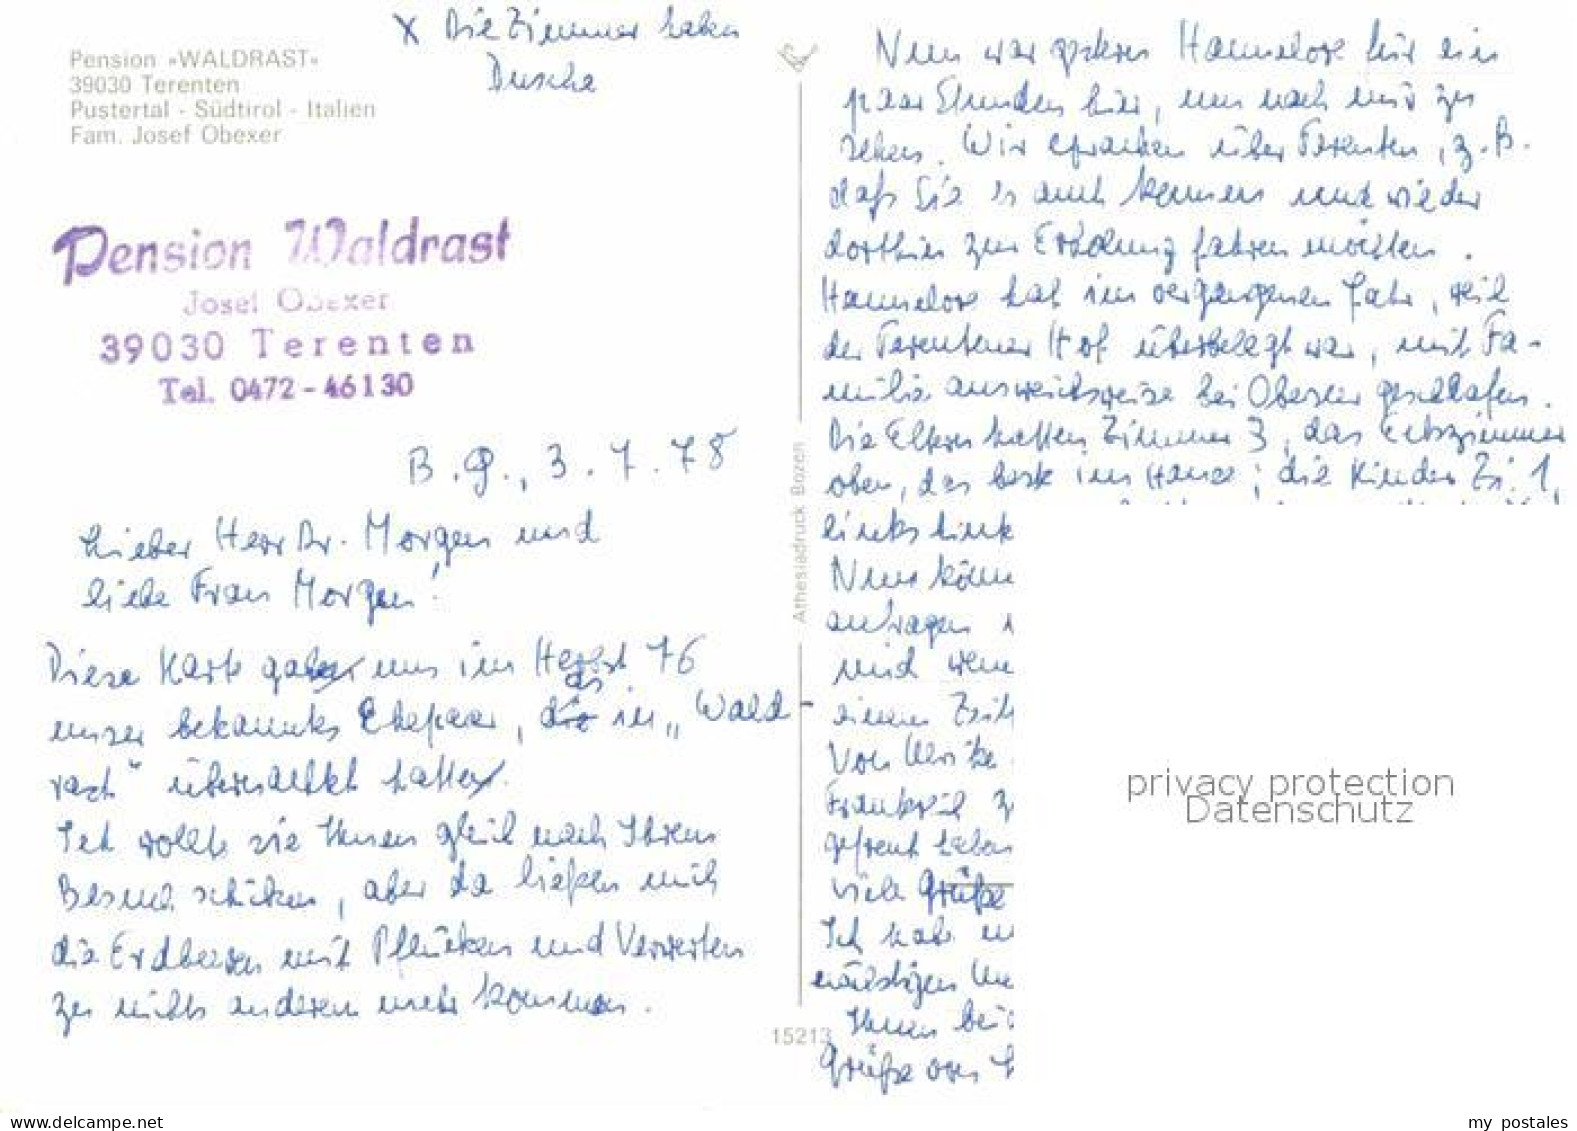 Pension »WALDRAST«
39030 Terenten
Pustertal - Südtirol - Italien
Fam. Josef Obexer
X Die Zimmer haben
Dusche
Pension Waldrast
Josef Obexer
39030 Terenten
Tel. 0472-46130
B. G., 3.7.78
Lieber Herr Dr. Morgen und
liebe Frau Morgen!
Diese Karte gab uns im Herbst 76
unser bekanntes Ehepaar, das in „Wald-
rast" übernachtet hatte.
Ich wollte sie Ihnen gleich nach Ihrem
Besuch schicken, aber da ließen mich
die Erdbeeren mit Pflücken und Verwerten
zu nichts anderem mehr kommen.
Athesiadruck Bozen
15213
Nun war gestern Hannelore für ein
paar Stunden hier, um nach mir zu
sehen. Wir sprachen über Terenten, z.B.
daß Sie es auch kennen und wieder
dorthin zur Erholung fahren möchten.
Hannelore hat im vergangenen Jahr, weil
der Terentener Hof überbelegt war, mit Fa-
milie ausweichsweise bei Obexer geschlafen.
Die Eltern hatten Zimmer 3, das Eckzimmer
oben, das beste im Hause; die Kinder Zi. 1,
links
Nun
anfragen
und
einen
Von Ulrike
Frankreich
gefreut haben
viele Grüße
Ich habe
nächstigen
Ihnen
Grüße von
privacy protection
Datenschutz
www.delcampe.net
my_postales